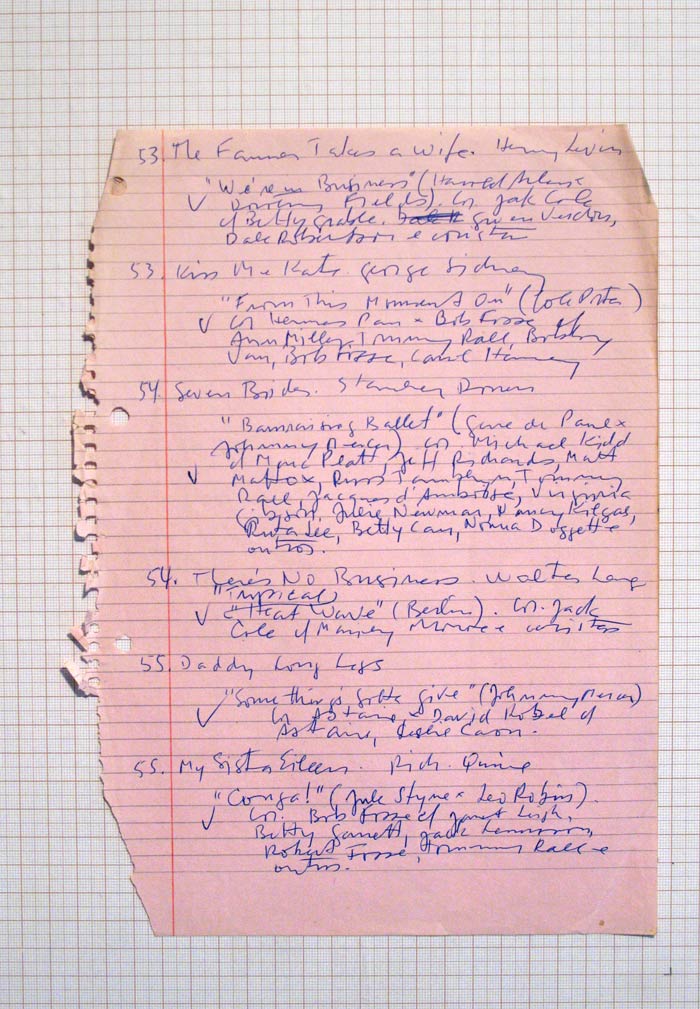 53. The Farmer Takes a Wife. Henry Levin
"We're in Business" (Harold Arlen x
Dorothy Fields). Cor. Jack Cole
c/ Betty Grable. Gwen Verdon,
Dale Robertson e coristas
53. Kiss Me Kate. George Sidney
"From This Moment On" (Cole Porter)
Cor. Hermes Pan x Bob Fosse c/
Ann Miller, Tommy Rall, Bobby
Van, Bob Fosse, Carol Haney
54. Seven Brides. Stanley Donen
"Barnraising Ballet" (Gene de Paul x
Johnny Mercer) Cor. Michael Kidd
c/ Marc Platt, Jeff Richards, Matt
Mattox, Russ Tamblyn, Tommy
Rall, Jacques d'Amboise, Virginia
Gibson, Julie Newmar, Nancy Kilgas,
Ruta Lee, Betty Carr, Norma Doggett e
outros.
54. There's No Business. Walter Lang
"Tropical
"Heat Wave" (Berlin). Cor. Jack
Cole c/ Marilyn Monroe e coristas
55. Daddy Long Legs
"Something's Gotta Give" (Johnny Mercer)
Cor. Astaire x David Robel c/
Astaire, Leslie Caron.
55. My Sister Eileen. Rich. Quine
"Conga!" (Jule Styne x Leo Robin).
Cor. Bob Fosse c/ Janet Leigh,
Betty Garrett, Jack Lemmon,
Robert Fosse, Tommy Rall e
outros.